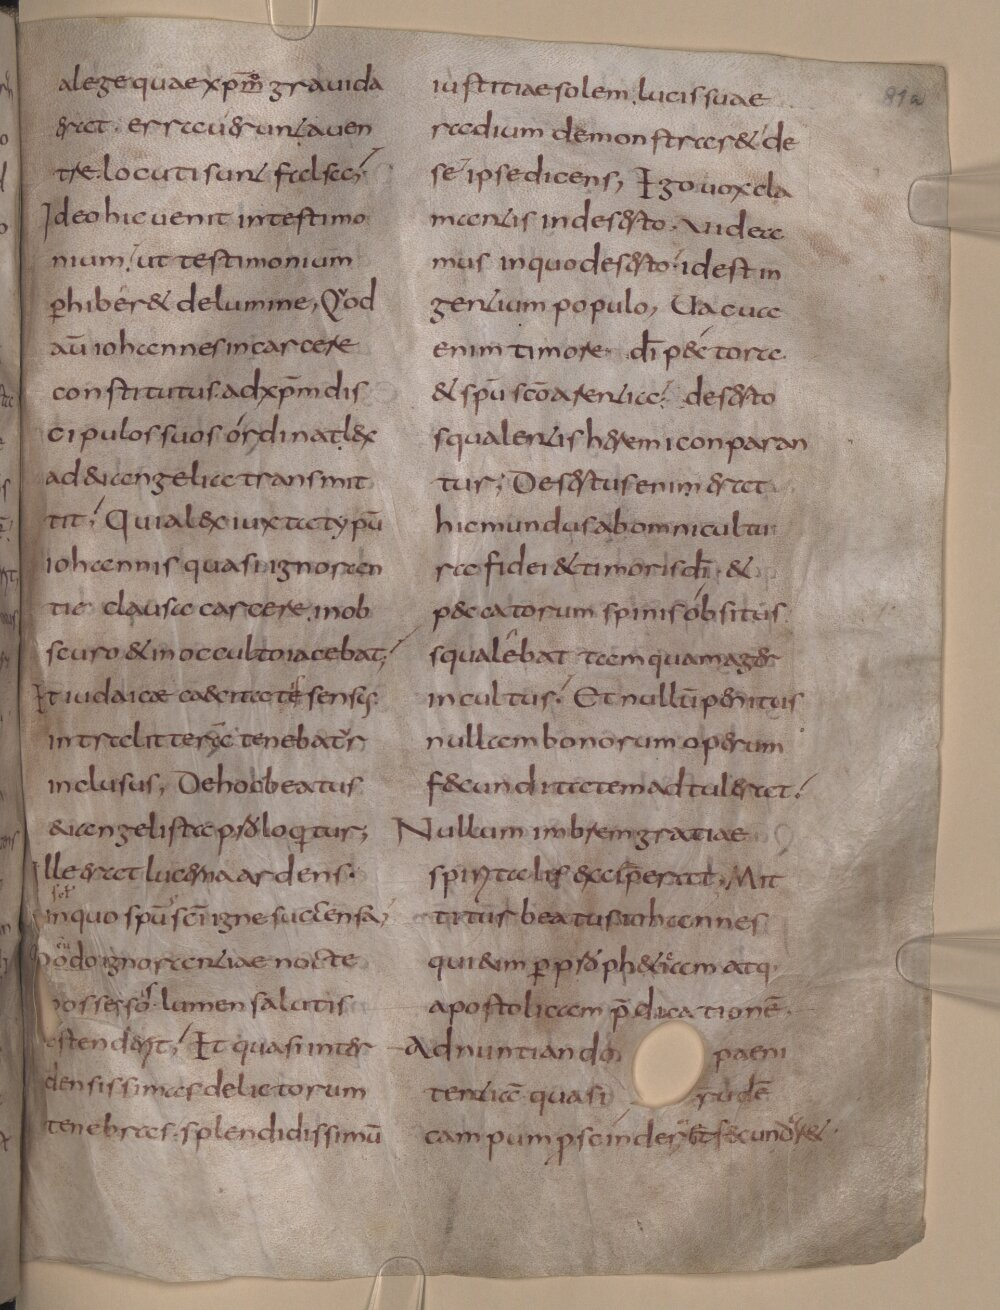 a lege quae xpm̄ gravida
erat. erraverunt a ven
tre. locuti sunt falsa;
Ideo hic venit in testimo
nium. ut testimonium
perhiberet de lumine, Quod
aū iohannes in carcere
constitutus. ad xpm̄ dis
cipulos suos ordinat. lex
ad evangelica transmit
tit; Quia lex iuxta typū
iohannis quasi ignoran
tie clausa carcere. in ob
scuro et in occulto iacebat;
Et iudaicae caecitate sensus
intra litterā tenebatur
inclusus, De hoc beatus
evangelista prod loquitur;
Ille erat lucerna ardens.
in quo spū scī igne succensa,
ignorantiae nocte
possesso. lumen salutis
ostenderet; Et quasi inter
densissimas delictorum
tenebras. splendidissimū
81a
iustitiae solem. lucis suae
radium demonstraret de
se ipse dicens, Ego vox cla
mantis in deserto. Videa
mus in quo deserto. id est in
gentium populo, Vacua
enim timore dī pectora.
et spū scō arentia. deserto
squalentis heremi conparan
tur; Desertus enim erat
hic mundus ab omni cultu
ra fidei et timoris dī. et
peccatorum spinis obsitus
squalebat tamquam ager
incultus. Et nullū penitus
nullam bonorum operum
fecunditatem adtulerat.
Nullum imbrem gratiae
spiritalis exceperat. Mit
titur beatus iohannes
qui eum per propheticam atq
apostolicam p̄dicationē.
Adnuntiando paeni
tentiā quasi rudē
campum proscinderet et fecundaret